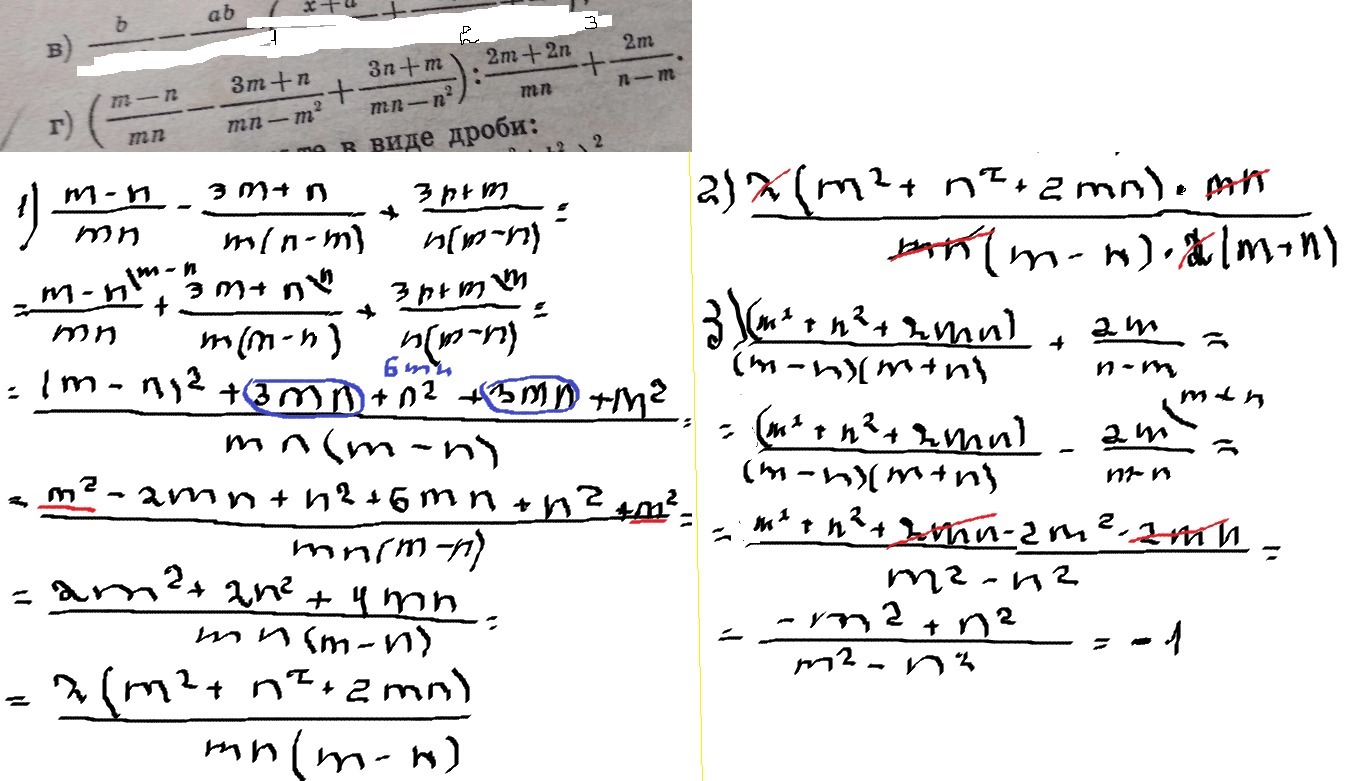 в) b/ − ab/ ( x+a/ +
1 2 3
г) ( (m − n)/(mn) − (3m + n)/(mn − m²) + (3n + m)/(mn − n²) ) : (2m + 2n)/(mn) + 2m/(n − m).
в виде дроби:
1) (m-n)/(mn) - (3m+n)/(m(n-m)) + (3n+m)/(n(m-n)) =
= (m-n)/(mn) \m-n + (3m+n)/(m(m-n)) \n + (3n+m)/(n(m-n)) \m =
6mn
= ((m-n)² + 3mn + n² + 3mn + m²)/(mn(m-n)) =
= (m² - 2mn + n² + 6mn + n² + m²)/(mn(m-n)) =
= (2m² + 2n² + 4mn)/(mn(m-n)) =
= 2(m² + n² + 2mn)/(mn(m-n))
2) 2(m² + n² + 2mn) · mn/(mn(m-n) · 2(m+n))
3) (m² + n² + 2mn)/((m-n)(m+n)) + 2m/(n-m) =
= (m² + n² + 2mn)/((m-n)(m+n)) - 2m/(m-n) \m+n =
= (m² + n² + 2mn - 2m² - 2mn)/(m² - n²) =
= (-m² + n²)/(m² - n²) = -1